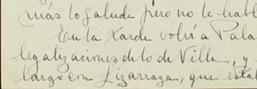 más lo saludé pero no le habl
En la tarde volví a Pala
legalizaciones de lo de Villa, y
largo con Lizarraga, que esta